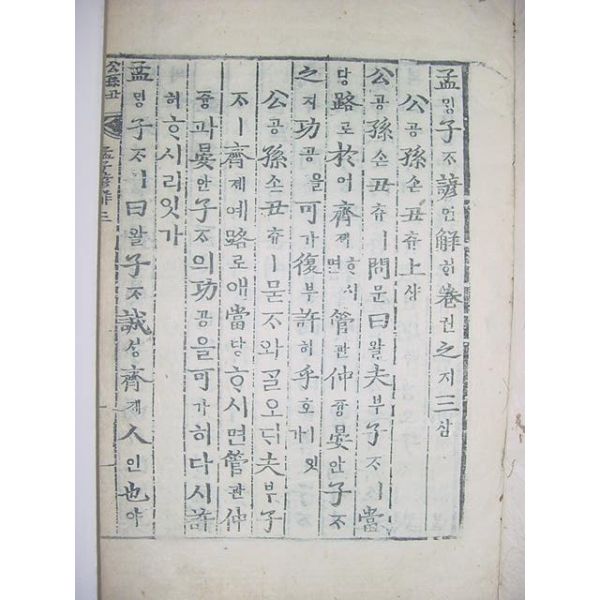 孟ᄆᆡᆼ子ᄌᆞ諺언解ᄒᆡ卷권之지三삼
公공孫손丑츄上샹
公공孫손丑츄ㅣ問문曰왈夫부子ᄌᆞㅣ當
당路로於어齊졔ᄒᆞ시면管관仲즁晏안子ᄌᆞ
之지功공을可가復부許허乎호ㅣ잇가
公공孫손丑츄ㅣ묻ᄌᆞ와ᄀᆞᆯ오ᄃᆡ夫부子
ᄌᆞㅣ齊졔예路로애當당ᄒᆞ시면管관仲
즁과晏안子ᄌᆞ의功공을可가히다시許
허ᄒᆞ시리잇가
孟ᄆᆡᆼ子ᄌᆞㅣ曰왈子ᄌᆞ誠셩齊졔人인也야
孟子諺解三